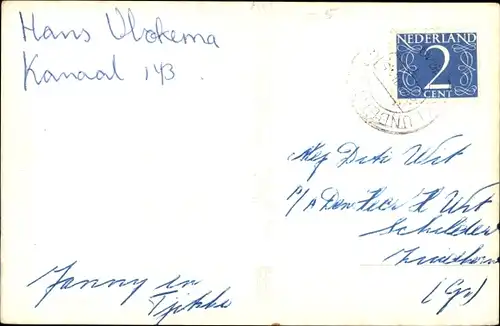 Hans Vlokema
Kanaal 143
NEDERLAND
2
CENT
Mej Diti Wit
p/A Den Heer H Wit
Schilder
(Gr)
Janny en
Tjikke